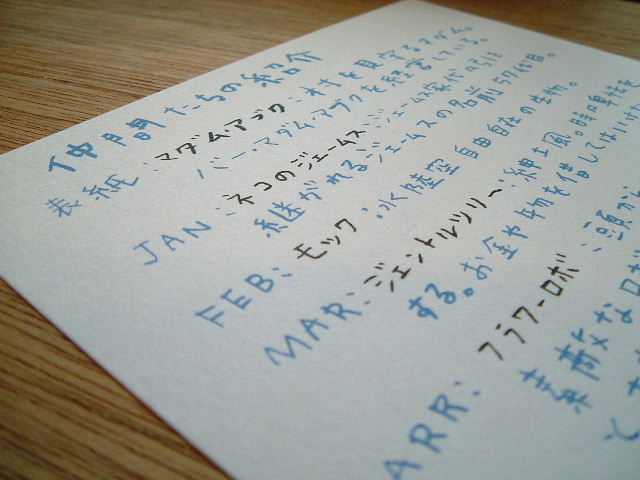 仲間たちの紹介
表紙:マダム・アブク:オオを見守るマダム。
バーマダム・アブクを経営している。
JAN:ネコのジェームス:ジェームス家代々に
継がれるジェームスの名前57代目。
FEB:モック:水陸空自由自在の生物。
MAR:ジェントルツリー:紳士風。時々魔法を
する。お金や物を借してはいけ
ARR:フラワーロボ:頭が
素敵なロボ
と